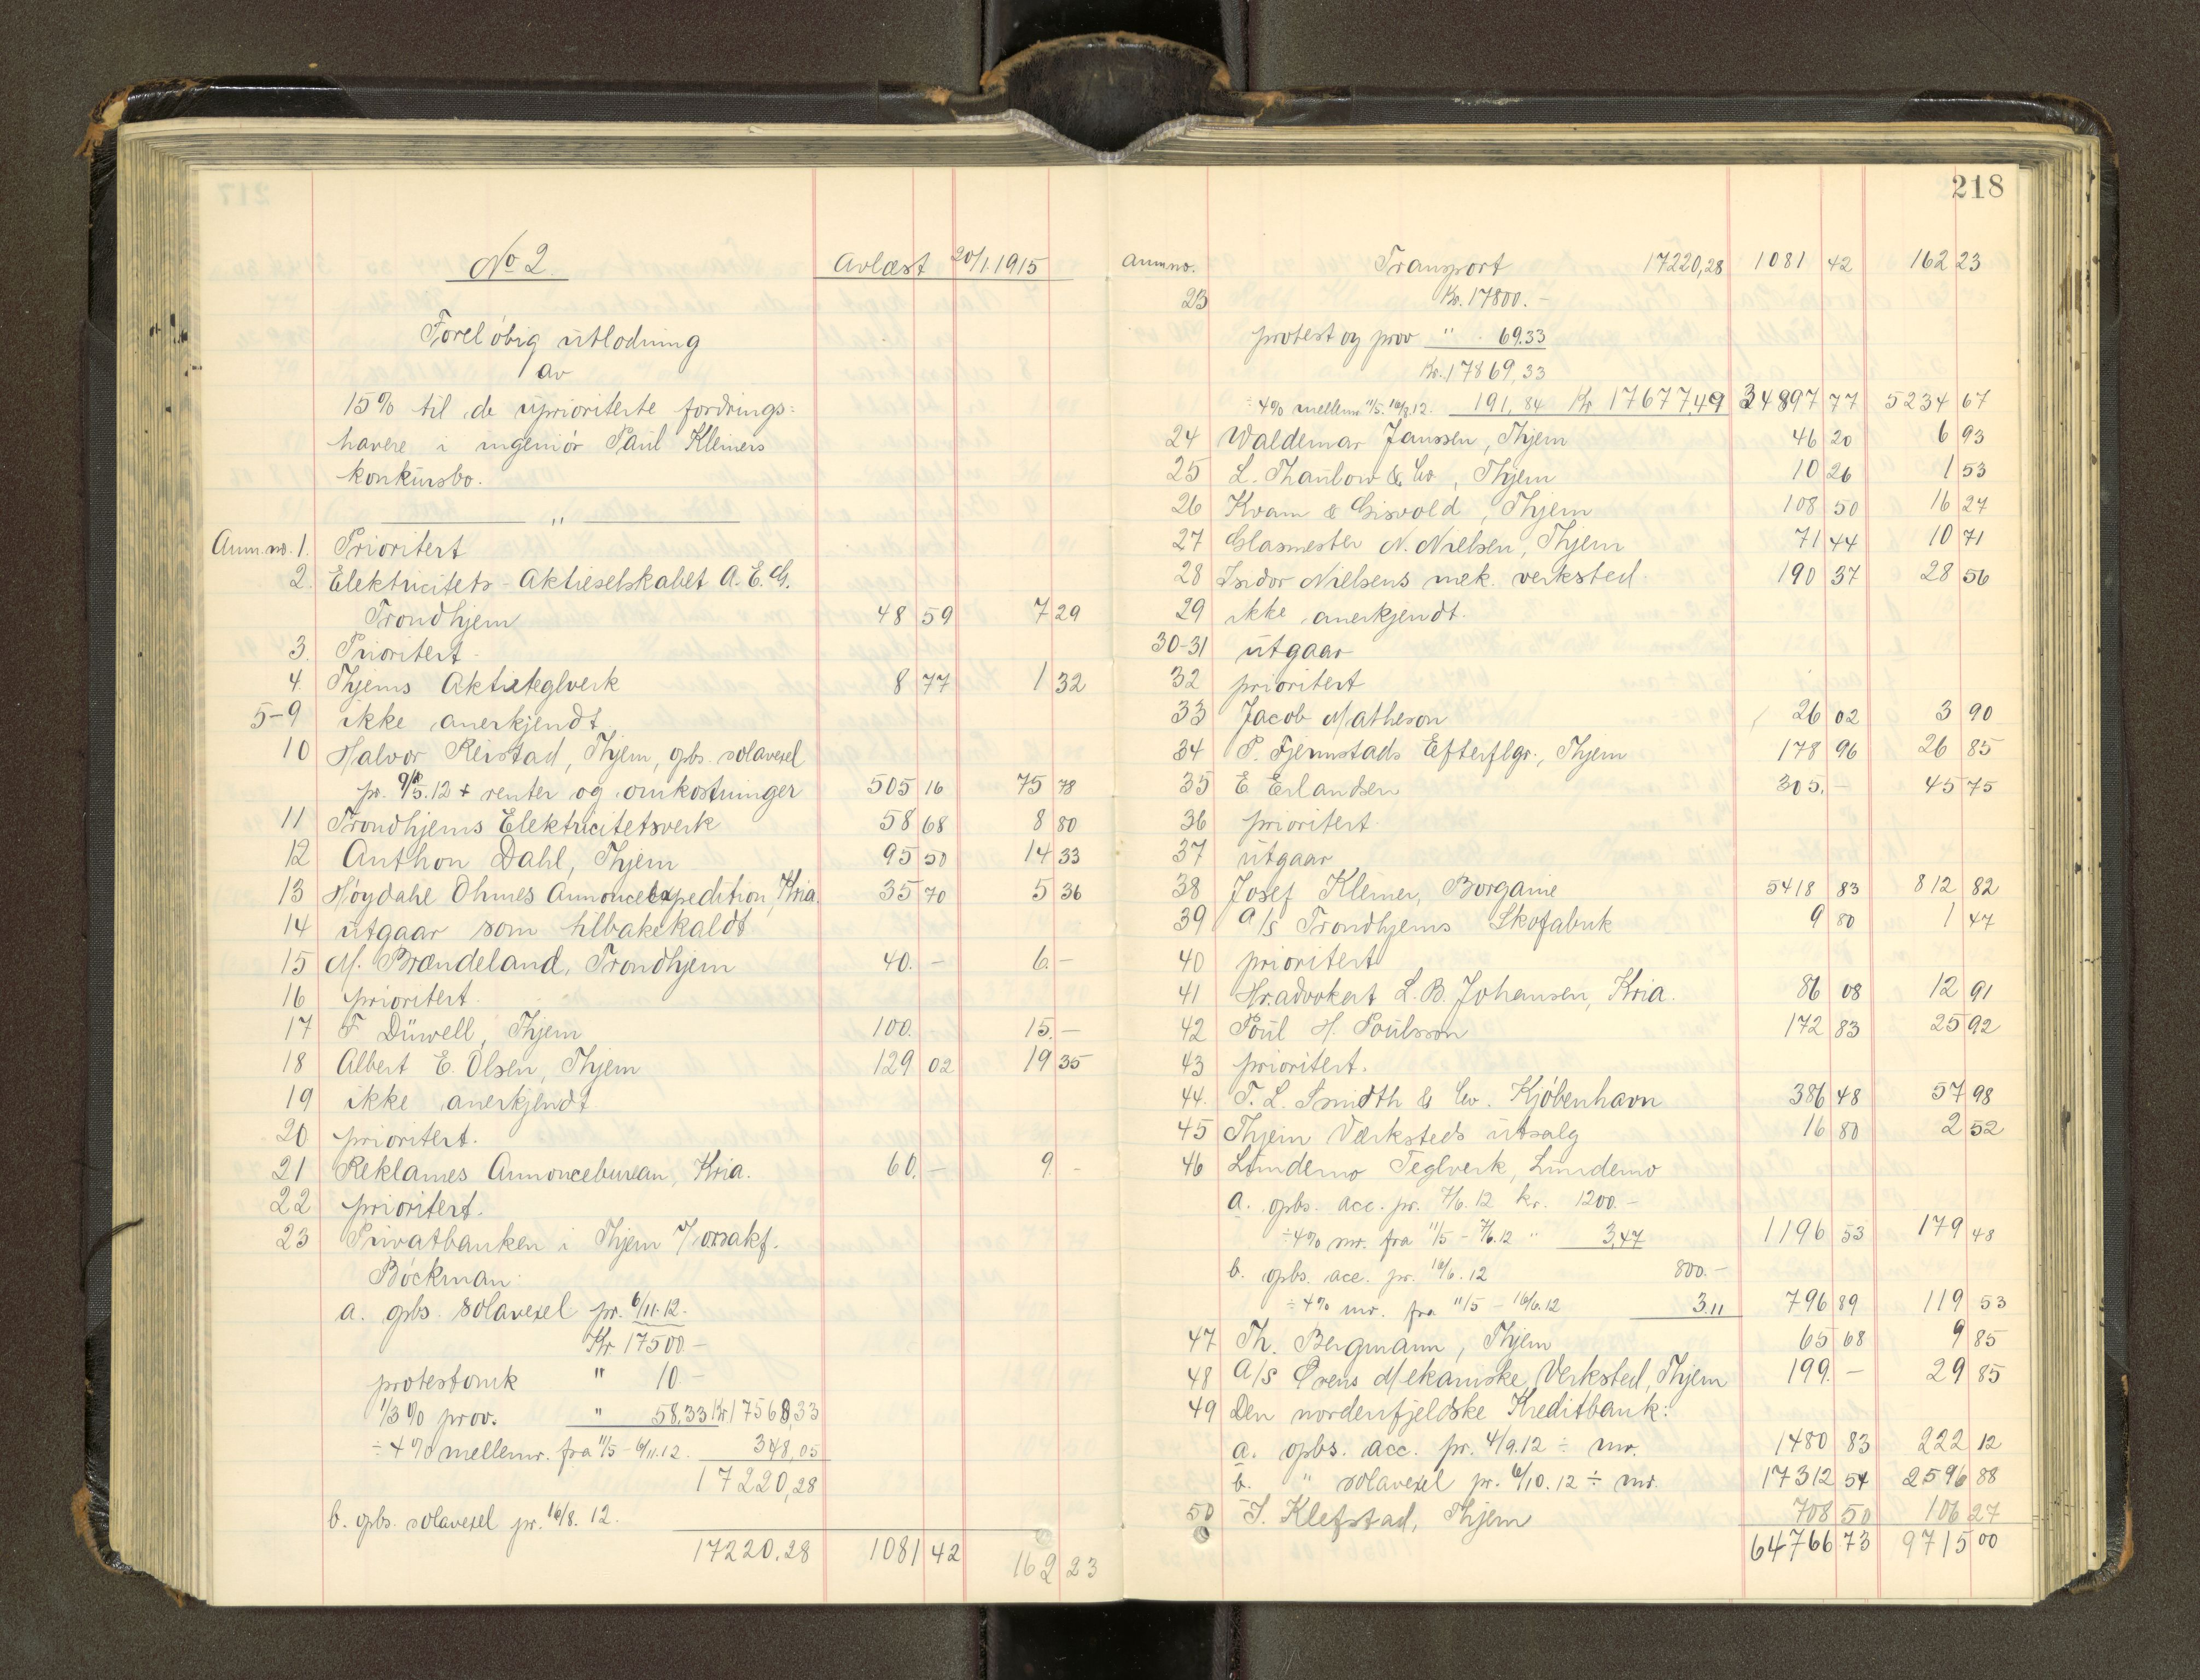 No 2. Avlæst 20/1.1915
Foreløbig utlodning
av
15% til de uprioriterte fordrings=
havere i ingeniør Paul Kleiners
konkursbo.
"
Anm. no. 1. Prioritert
2. Elektricitets-Aktieselskabet A.E.G.
Trondhjem 48 59 7 29
3. Prioritert
4. Thjems Aktieteglverk 8 77 1 32
5-9 ikke anerkjendt
10 Halvor Reistad, Thjem, gbs. solavexel
pr. 9/5.12 + renter og omkostninger 505 16 75 78
11 Trondhjems Elektricitetsverk 58 68 8 80
12 Anthon Dahl, Thjem 95 50 14 33
13 Høydahl Ohmes Annonceexpedition, Kria. 35 70 5 36
14 utgaar som tilbakekaldt
15 M. Brændeland, Trondhjem 40. - 6. -
16 prioritert.
17 F Düwell, Thjem 100. 15. -
18 Albert E. Olsen, Thjem 129 02 19 35
19 ikke anerkjendt
20 prioritert.
21 Reklames Annoncebureau, Kria. 60. - 9. -
22 prioritert.
23 Privatbanken i Thjem v/ orsakf.
Bøckman:
a. gbs. solavexel pr. 6/11.12.
Kr 17500 -
protestomk " 10 -
1/3% prov. " 58.33 Kr 17568,33
÷ 4% mellemr. fra 11/5 - 6/11.12. 348,05
17220,28
b. gbs. solavexel pr. 16/8. 12.
17220.28 1081 42 162 23
218
Anm no. Transport 17220,28 1081 42 162 23
23 Kr. 17800. -
protest og prov " 69.33
Kr. 17869,33
÷ 4% mellemr 11/5. 16/8.12. 191,84 Kr 17677,49 34897 77 5234 67
24 Waldemar Janssen, Thjem 46 20 6 93
25 L. Thaulow & Co, Thjem 10 26 1 53
26 Kvam & Gisvold, Thjem 108 50 16 27
27 Glasmester N. Nielsen, Thjem 71 44 10 71
28 Isidor Nielsens mek. verksted. 190 37 28 56
29 ikke anerkjendt.
30-31 utgaar
32 prioritert
33 Jacob Matheson 26 02 3 90
34 P. Fjermstads Efterflgr., Thjem 178 96 26 85
35 E Erlandsen 305. - 45 75
36 prioritert.
37 utgaar
38 Josef Kleiner, Borgarne 5418 83 812 82
39 A/S Trondhjems Skofabrik 9 80 1 47
40 prioritert
41 Hr.advokat L.B. Johansen, Kria. 86 08 12 91
42 Poul H. Poulsson 172 83 25 92
43 prioritert.
44. F. L. Smidth & Co. Kjøbenhavn 386 48 57 98
45 Thjem Værksteds utsalg 16 80 2 52
46 Lundemo Teglverk, Lundemo
a. gbs. acc. pr. 7/6.12 kr. 1200. -
÷ 4% mr. fra 11/5 - 7/6.12 " 3,47 1196 53 179 48
b. gbs. acc. pr. 16/6.12 800. -
÷ 4% mr. fra 11/5 - 16/6.12 3.11 796 89 119 53
47 Th. Bergmann, Thjem 65 68 9 85
48 A/S Ørens Mekaniske Verksted, Thjem 199. - 29 85
49 Den nordenfjeldske Kreditbank:
a. gbs. acc. pr. 4/9.12 ÷ mr. 1480 83 222 12
b. " solavexel pr. 6/10.12 ÷ mr. 17312 54 2596 88
50 I. Klefstad, Thjem 708 50 106 27
64766 73 9715 00